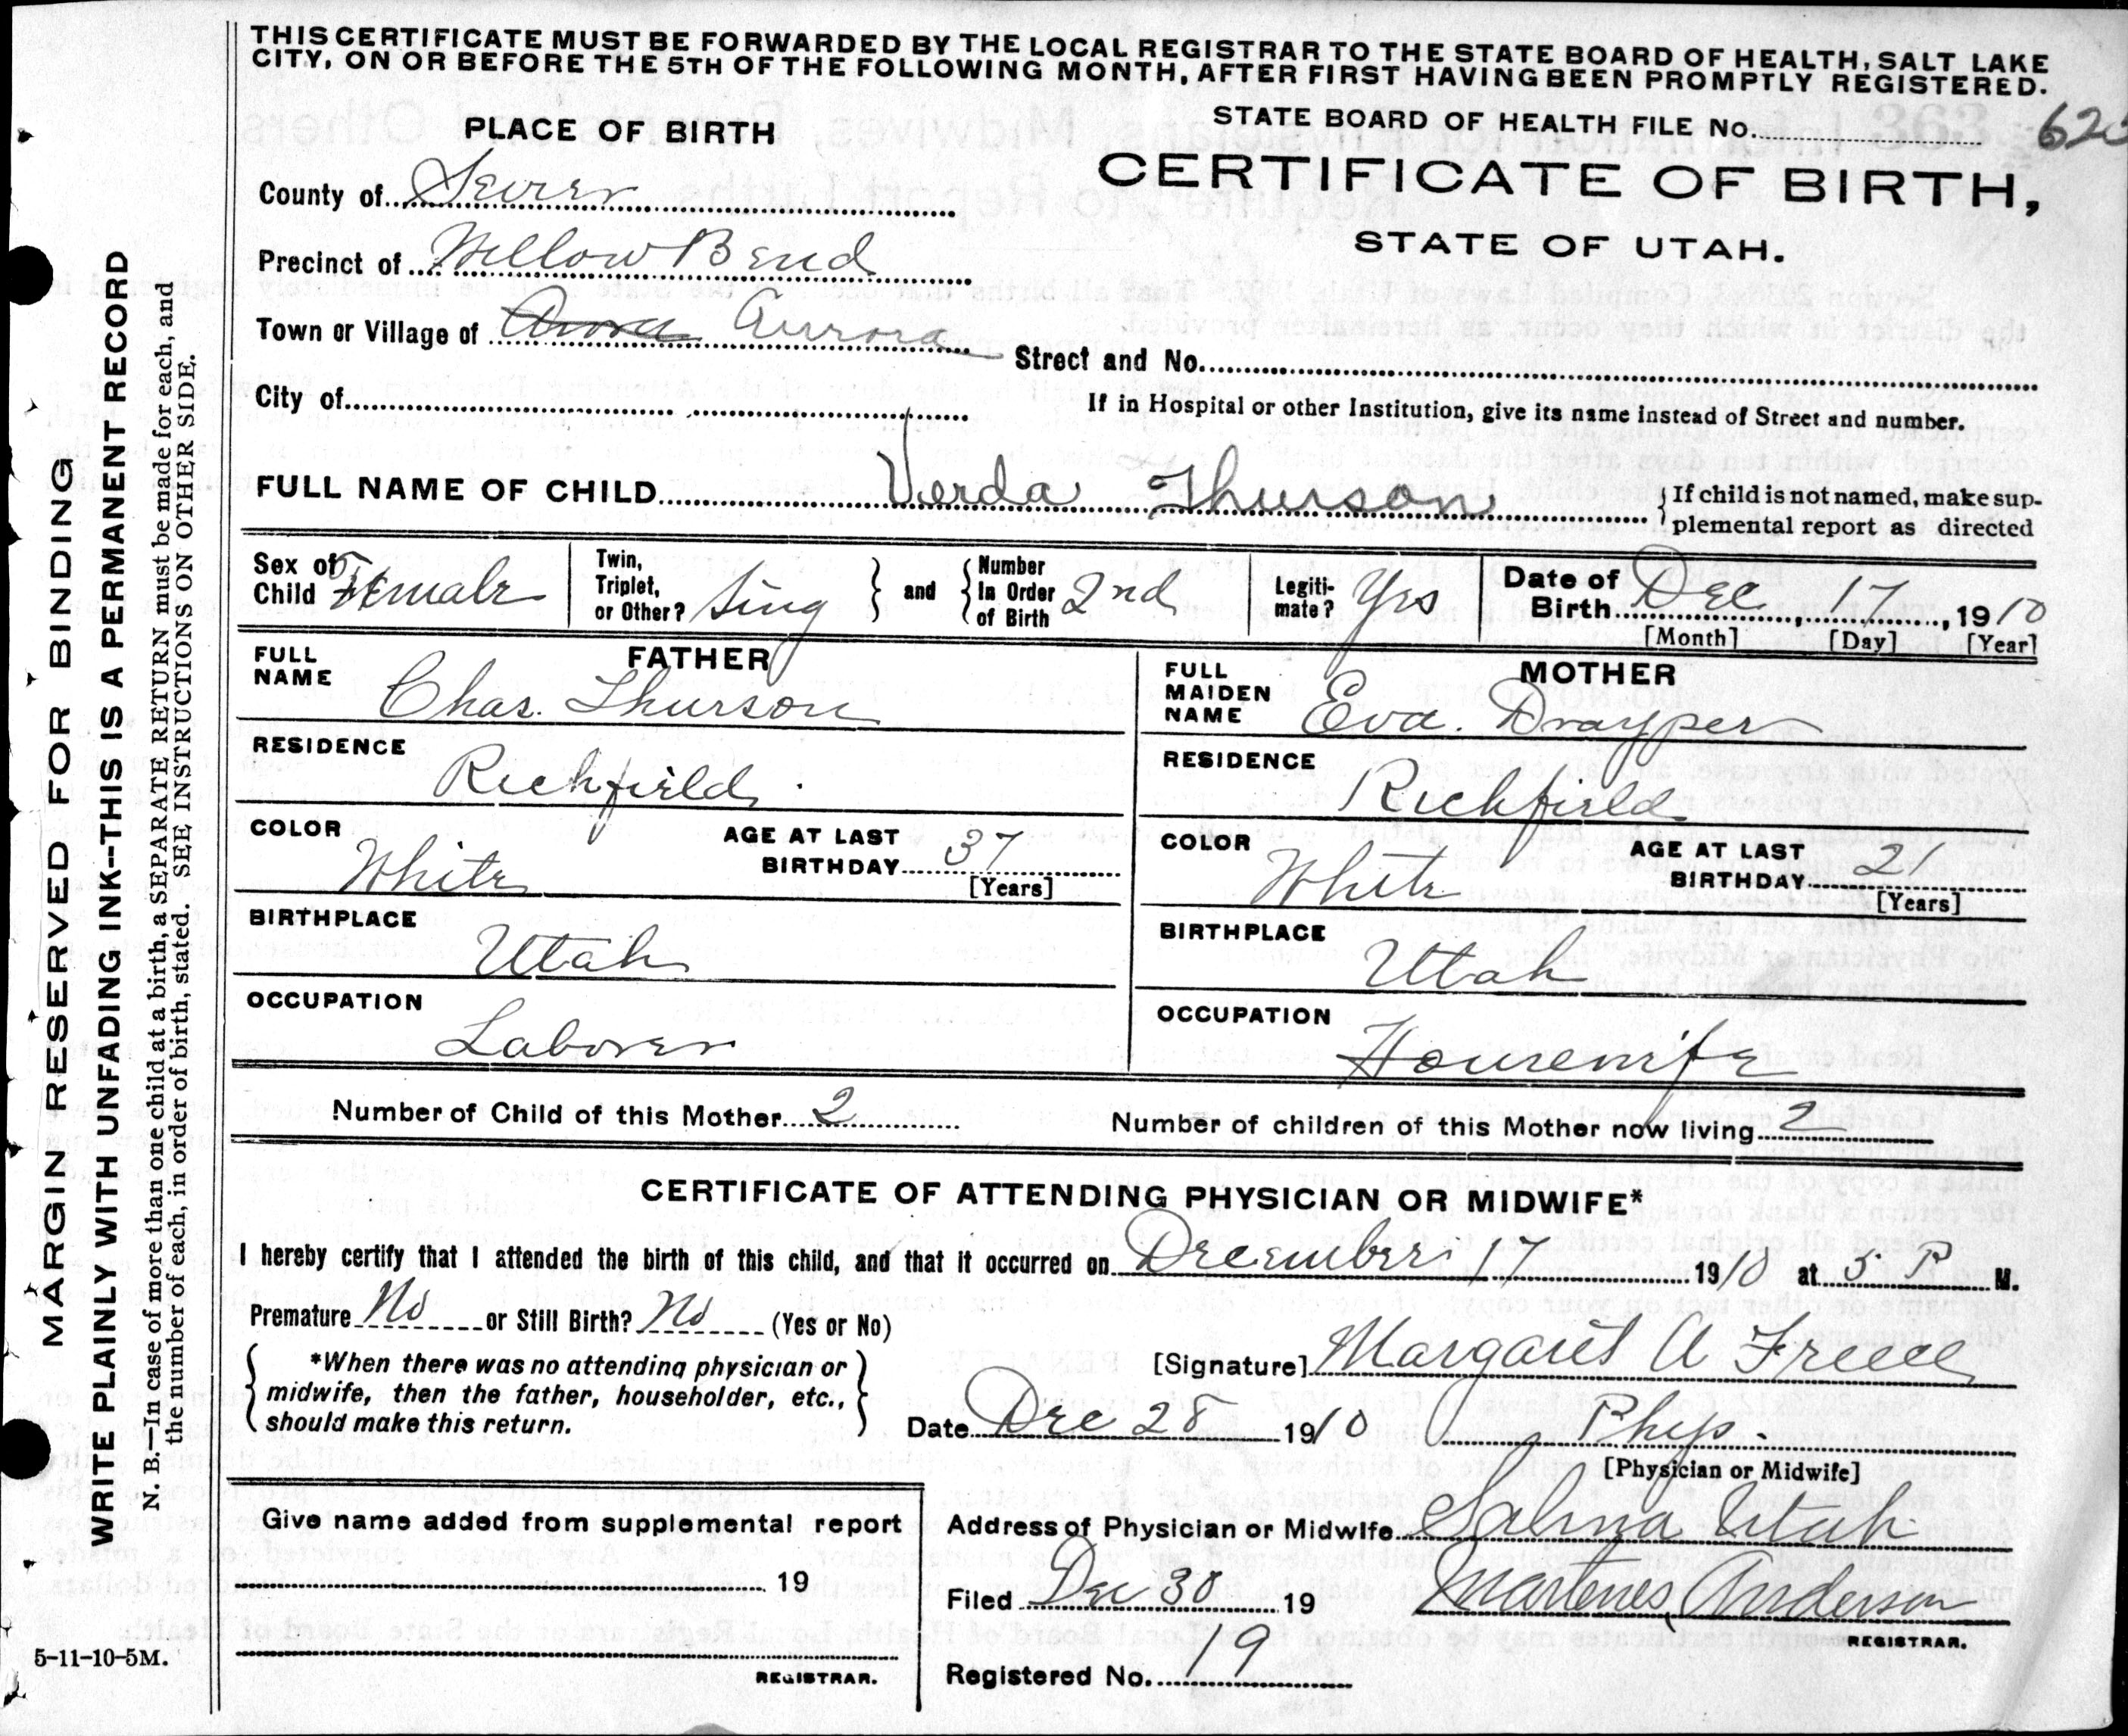 THIS CERTIFICATE MUST BE FORWARDED BY THE LOCAL REGISTRAR TO THE STATE BOARD OF HEALTH, SALT LAKE
CITY, ON OR BEFORE THE 5TH OF THE FOLLOWING MONTH, AFTER FIRST HAVING BEEN PROMPTLY REGISTERED.
STATE BOARD OF HEALTH FILE No.
PLACE OF BIRTH
CERTIFICATE OF BIRTH,
STATE OF UTAH.
County of Sevier
Precinct of Willow Bend
Town or Village of Aurora
Street and No.
City of
If in Hospital or other Institution, give its name instead of Street and number.
FULL NAME OF CHILD Verda Thurson
{If child is not named, make sup-
plemental report as directed
Sex of Child Female
Twin, Triplet, or Other? Sing } and { Number In Order of Birth 2nd
Legiti-mate? Yes
Date of Birth Dec 17, 1910
[Month] [Day] [Year]
FATHER
FULL NAME Chas. Thurson
RESIDENCE Richfield
COLOR White
AGE AT LAST BIRTHDAY 37
[Years]
BIRTHPLACE Utah
OCCUPATION Laborer
MOTHER
FULL MAIDEN NAME Eva. Drayper
RESIDENCE Richfield
COLOR White
AGE AT LAST BIRTHDAY 21
[Years]
BIRTHPLACE Utah
OCCUPATION Housewife
Number of Child of this Mother 2
Number of children of this Mother now living 2
CERTIFICATE OF ATTENDING PHYSICIAN OR MIDWIFE*
I hereby certify that I attended the birth of this child, and that it occurred on December 17 1910 at 5 P M.
Premature No or Still Birth? No (Yes or No)
{ *When there was no attending physician or
midwife, then the father, householder, etc.,
should make this return. }
[Signature] Margaret A Freece
Date Dec 28 1910
Phys.
[Physician or Midwife]
Give name added from supplemental report
19
REGISTRAR.
Address of Physician or Midwife Salina Utah
Filed Dec 30 19
Martenes Anderson
REGISTRAR.
Registered No. 19
5-11-10-5M.
MARGIN RESERVED FOR BINDING
WRITE PLAINLY WITH UNFADING INK--THIS IS A PERMANENT RECORD
N. B.—In case of more than one child at a birth, a SEPARATE RETURN must be made for each, and
the number of each, in order of birth, stated. SEE INSTRUCTIONS ON OTHER SIDE.